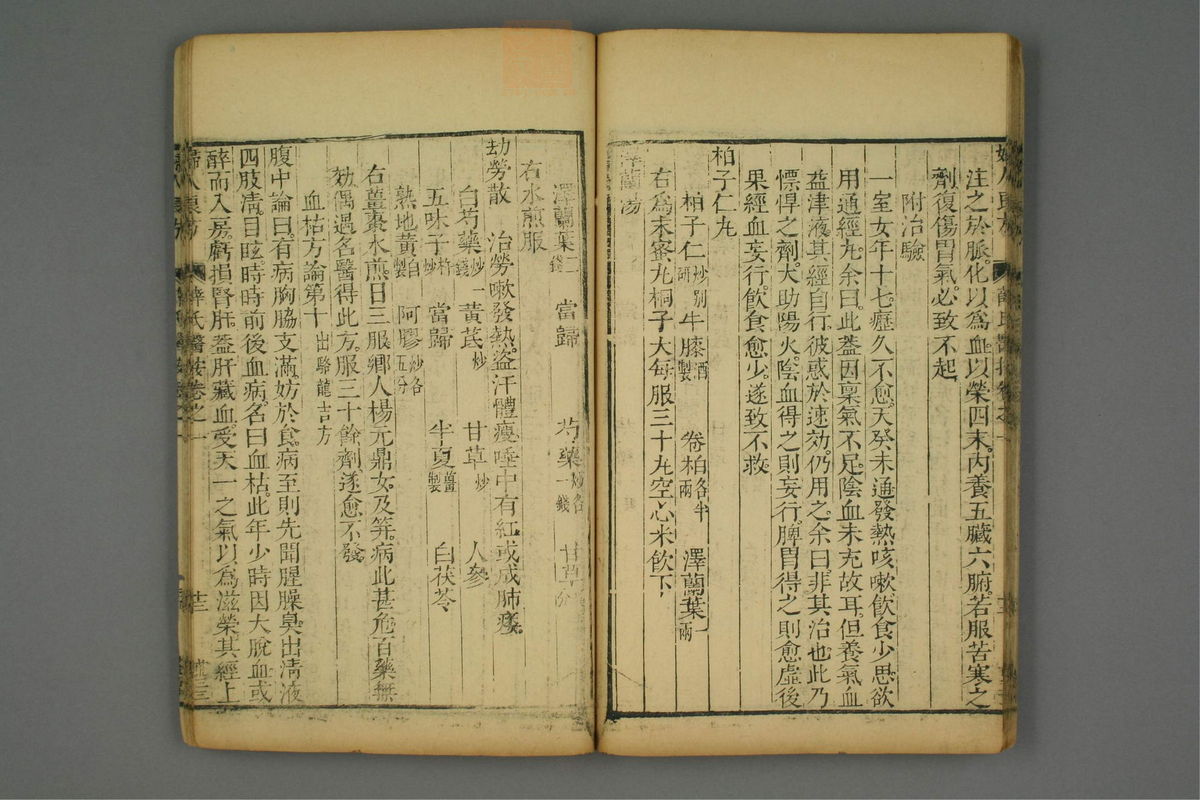 注之於脈化以爲血以榮四末内養五臓六腑若服苦寒之
劑復傷胃氣必致不起
附治驗
一室女年十七瘧久不愈天癸未通發熱咳嗽飲食少思欲
用通經丸余曰此蓋因稟氣不足陰血未充故耳但養氣血
益津液其經自行彼惑於速効仍用之余曰非其治也此乃
慓悍之劑大助陽火陰血得之則妄行脾胃得之則愈虛後
果經血妄行飲食愈少遂致不救
柏子仁丸
柏子仁炒別研 牛膝酒製 卷柏各半兩 澤蘭葉一兩
右爲末蜜丸桐子大每服三十丸空心米飲下
澤蘭湯
澤蘭葉二錢 當歸 芍藥炒各一錢 甘草分
右水煎服
劫勞散 治勞嗽發熱盜汗體瘦唾中有紅或成肺痿
白芍藥炒一錢 黃芪炒 甘草炒 人參
五味子杵炒 當歸 半夏薑製 白茯苓
熟地黃自製 阿膠炒各五分
右薑棗水煎日三服鄉人楊元鼎女及筓病此甚危百藥無
効偶遇名醫得此方服三十餘劑遂愈不發
血枯方論第十 出駱龍吉方
腹中論曰有病胸脇支滿妨於食病至則先聞腥臊臭出清液
四肢清目眩時時前後血病名曰血枯此年少時因大脫血或
醉而入房虧損腎肝蓋肝藏血受天一之氣以爲滋榮其經上
婦人良方 薛氏醫按卷之一 十三